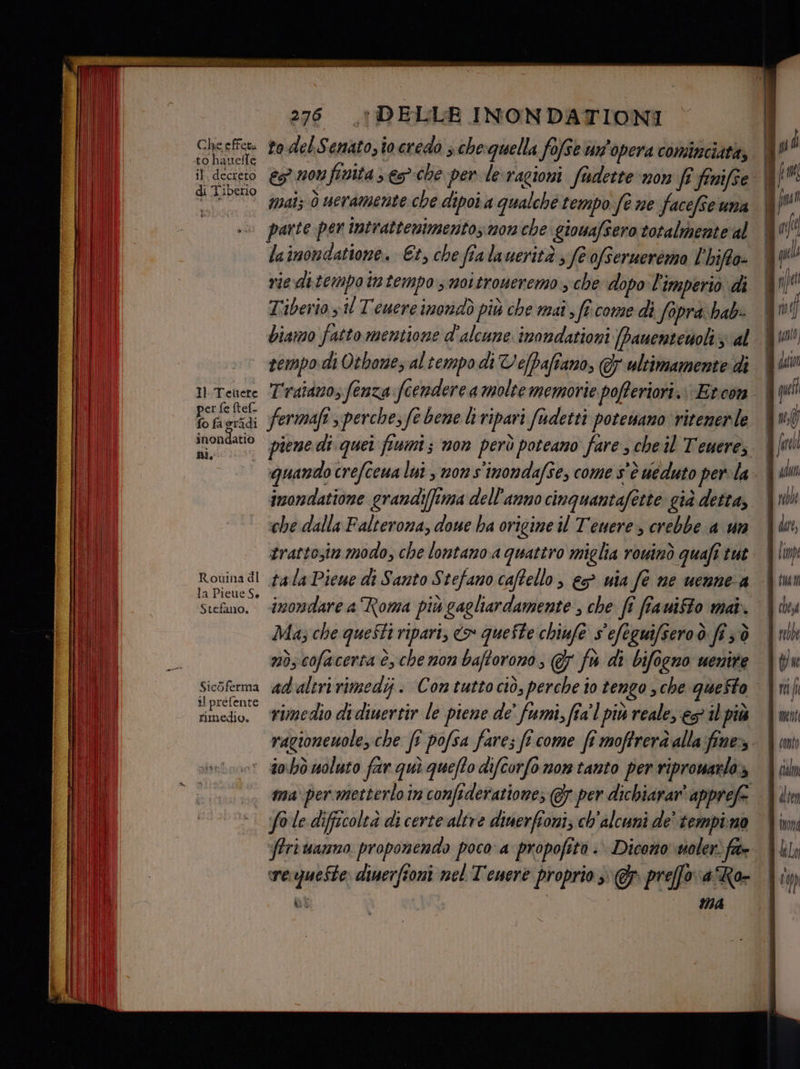 276 DELLE INONDATIONI
Che effet-
to hauesse
il decreto
di Tiberio
to del Senato, io credo, che quella fosse un'opera cominciata,
& non finita, & che per le ragioni sudette non si finisse
mai; ò ueramente che dipoi a qualche tempo se ne facesse una
parte per intrattenimento, non che giouassero totalmente al
la inondatione. Et, che sia la uerità, se osserueremo l'histo-
rie di tempo in tempo, noi troueremo, che dopo l'imperio di
Tiberio, il Teuere inondò più che mai, si come di sopra hab-
biamo fatto mentione d'alcune inondationi spauenteuoli, al
tempo di Othone, al tempo di Vespasiano, & ultimamente di
Il Teuere
per se stes-
so fa grãdi
inondatio
ni.
Traiano, senza scendere a molte memorie posteriori. Et con
fermasi, perche, se bene li ripari sudetti poteuano ritenerle
piene di quei fiumi; non però poteano fare, che il Teuere,
quando cresceua lui, non s'inondasse, come s'è ueduto per la
inondatione grandissima dell'anno cinquantasette già detta,
che dalla Falterona, doue ha origine il Teuere, crebbe a un
tratto, in modo, che lontano a quattro miglia rouinò quasi tut
Rouina dl
la Pieue S.
Stefano.
ta la Pieue di Santo Stefano castello, & uia se ne uenne a
inondare a Roma più gagliardamente, che si sia uisto mai.
Ma, che questi ripari, & queste chiuse s'eseguissero ò sì, ò
nò, cosa certa è, che non bastorono, & fu di bisogno uenire
Sicõferma
il presente
rimedio.
ad altri rimedij. Con tutto ciò, perche io tengo, che questo
rimedio di diuertir le piene de' fiumi, sia'l più reale, & il più
ragioneuole, che si possa fare; si come si mostrerà alla fine;
io hò uoluto far quì questo discorso non tanto per riprouarlo;
ma per metterlo in consideratione, & per dichiarar' appres-
so le difficoltà di certe altre diuersioni, ch'alcuni de' tempi no
stri uanno proponendo poco a proposito. Dicono uoler fa-
re queste diuersioni nel Teuere proprio; & presso a Ro-
ma